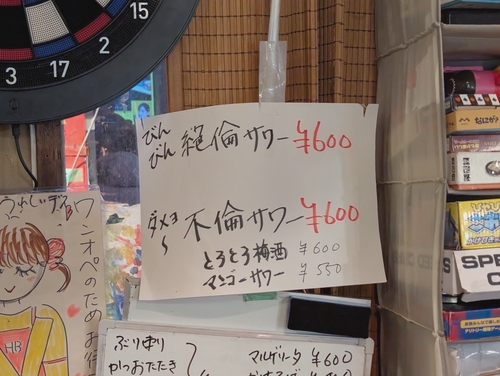 15
2
17
3
びんびん 絶倫サワー ¥600
ダメヨ〜 不倫サワー ¥600
とろとろ梅酒 ¥600
マンゴーサワー ¥550
うれしいデイ
ワンオペのため お
HB
ぶり切り
かつおたたき
マルゲリータ ¥600
なにが?
SPE